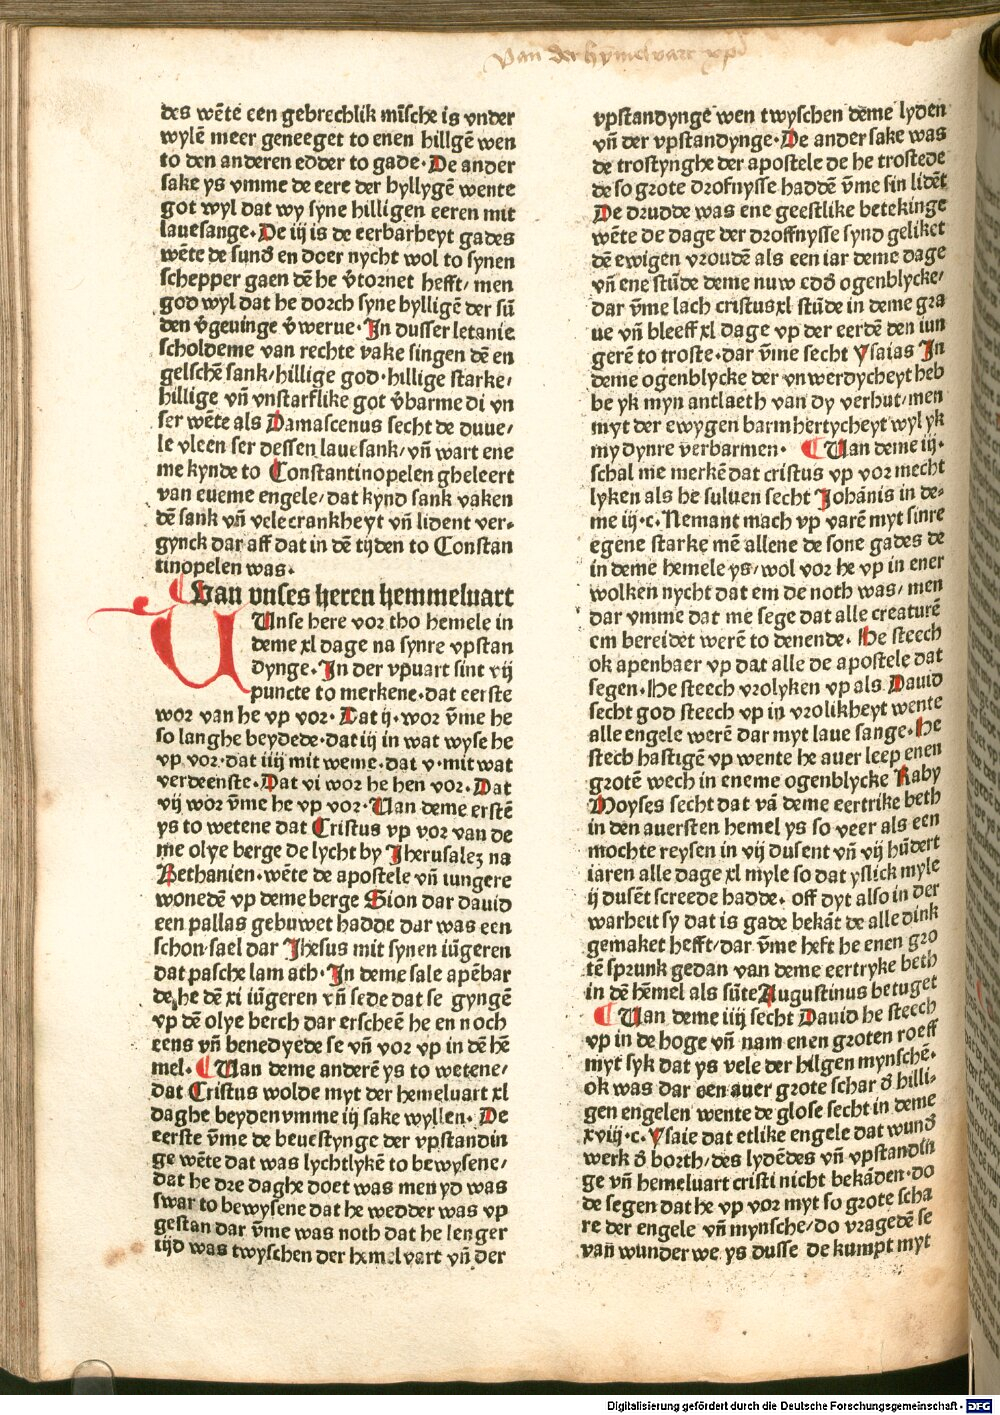 Van der hymelvart xpi
des wēte een gebrechlik mīsche is vnder
wylē meer geneeget to enen hillgē wen
to den anderen edder to gade· De ander
sake ys vmme de eere der hyllygē wente
got wyl dat wy syne hilligen eeren mit
lauesange· De iij is de eerbarheyt gades
wēte de sunð en doer nycht wol to synen
schepper gaen dē he v̄tornet hefft/ men
god wyl dat he dorch syne hylligē der sū
den v̄geuinge v̄werue· In dusser letanie
scholdeme van rechte vake singen dē en
gelschē sank/hillige god·hillige starke/
hillige vn̄ vnstarflike got v̄barme di vn
ser wēte als Damascenus secht de duue/
le vleen ser dessen lauesank/vn̄ wart ene
me kynde to Constantinopelen gheleert
van eueme engele/dat kynd sank vaken
dē sank vn̄ vele crankheyt vn̄ lident ver-
gynck dar aff dat in dē tijden to Constan
tinopelen was·
¶ Van vnses heren hemmeluart
Unse here vor tho hemele in
deme xl dage na synre vpstan
dynge· In der vpuart sint vij
puncte to merkene·dat eerste
wor van he vp vor· Dat ij·wor v̄me he
so langhe beydede·dat iij in wat wyse he
vp vor·dat iiij mit weme·dat v·mit wat
verdeenste· Dat vi wor he hen vor· Dat
vij wor v̄me he vp vor· Van deme erstē
ys to wetene dat Cristus vp vor van de
me olye berge de lycht by Iherusalez na
Bethanien·wēte de apostele vn̄ iungere
wonedē vp deme berge Sion dar dauid
een pallas gebuwet hadde dar was een
schon·sael dar Ihesus mit synen iūgeren
dat pasche lam ath· In deme sale apēbar
de he dē xi iūgeren vn̄ sede dat se gyngē
vp dē olye berch dar erscheē he en noch
eens vn̄ benedyede se vn̄ vor vp in dē hē
mel· ¶ Van deme anderē ys to wetene/
dat Cristus wolde myt der hemeluart xl
daghe beyden vmme iij sake wyllen· De
eerste v̄me de beuestynge der vpstandin
ge wēte dat was lychtlykē to bewysene/
dat he dre daghe doet was men yd was
swar to bewysene dat he wedder was vp
gestan dar v̄me was noth dat he lenger
tijd was twyschen der hymelvart vn̄ der
vpstandynge wen twyschen deme lyden
vn̄ der vpstandynge· De ander sake was
de trostynghe der apostele de he trostede
de so grote drofnysse haddē v̄me sin lidēt
De drudde was ene geestlike betekinge
wēte de dage der droffnysse synd geliket
dē ewigen vroudē als een iar deme dage
vn̄ ene stūde deme nuw edð ogenblycke/
dar v̄me lach cristus xl stūde in deme gra
ue vn̄ bleeff xl dage vp der eerdē den iun
gerē to troste·dar v̄me secht Ysaias In
deme ogenblycke der vnwerdycheyt heb
be yk myn antlaeth van dy verhut/men
myt der ewygen barmhertycheyt wyl yk
my dynre verbarmen· ¶ Van deme iij·
schal me merkē dat cristus vp vor mecht
lyken als he suluen secht Johānis in de-
me iij·c· Nemant mach vp varē myt sinre
egene starke mē allene de sone gades de
in deme hemele ys/wol vor he vp in ener
wolken nycht dat em de noth was/men
dar vmme dat me sege dat alle creaturē
em bereidet werē to denende· He steech
ok apenbaer vp dat alle de apostele dat
segen· He steech vrolyken vp als Dauid
secht god steech vp in vrolikheyt wente
alle engele werē dar myt laue sange· He
steech hastigē vp wente he auer leep enen
grotē wech in eneme ogenblycke Raby
Moyses secht dat vā deme eertrike beth
in den auersten hemel ys so veer als een
mochte reysen in vij dusent vn̄ vij hūdert
iaren alle dage xl myle so dat yslick myle
ij dusēt screede hadde· off dyt also in der
warheit sy dat is gade bekāt de alle dink
gemaket hefft/dar v̄me heft he enen gro
tē sprunk gedan van deme eertryke beth
in dē hēmel als sūte Augustinus betuget
¶ Van deme iiij secht Dauid he steech
vp in de hoge vn̄ nam enen groten roeff
myt syk dat ys vele der hilgen mynschē·
ok was dar een auer grote schar ð hilli-
gen engelen wente de glose secht in deme
xviij·c· Ysaie dat etlike engele dat wunð
werk ð borth/des lydēdes vn̄ vpstandin
ge vn̄ hemeluart cristi nicht bekāden·do
de segen dat he vp vor myt so grote scha
re der engele vn̄ mynsche/do vragedē se
van wunder we ys dusse de kumpt myt
Digitalisierung gefördert durch die Deutsche Forschungsgemeinschaft - DFG